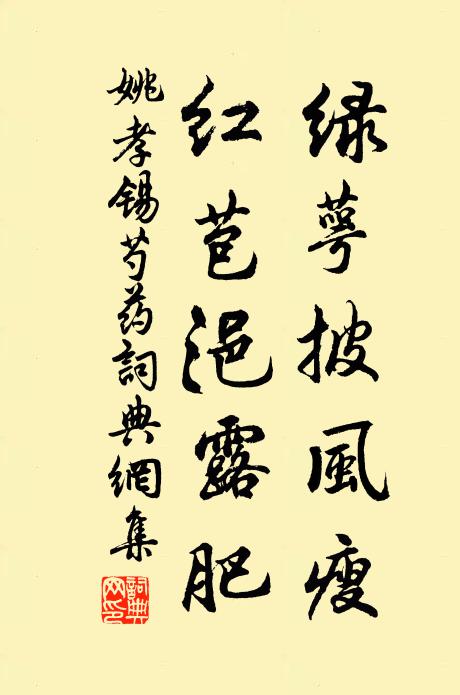 绿萼披風瘦
红苞浥露肥
姚孝锡芍药詞典網集
詞典網印